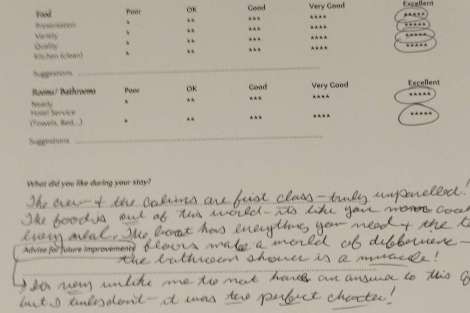 Food Poor OK Good Very Good Excellent
Presentation * ** *** **** *****
Variety * ** *** **** *****
Quality * ** *** **** *****
Kitchen (clean) * ** *** **** *****
Suggestions
Rooms/ Bathrooms Poor OK Good Very Good Excellent
Ready * ** *** **** *****
Hotel Service
(Towels, Bed,..) * ** *** **** *****
Suggestions
What did you like during your stay?
The crew + the cabins are first class - truly unparelled!
The food is out of this world - its like your
every meal. The boat has everything you need + the
Advice for future improvements floors make a world of difference -
the bathroom shower is a miracle!
very unlike me to not have an answer to this
but I - it was the perfect charter!